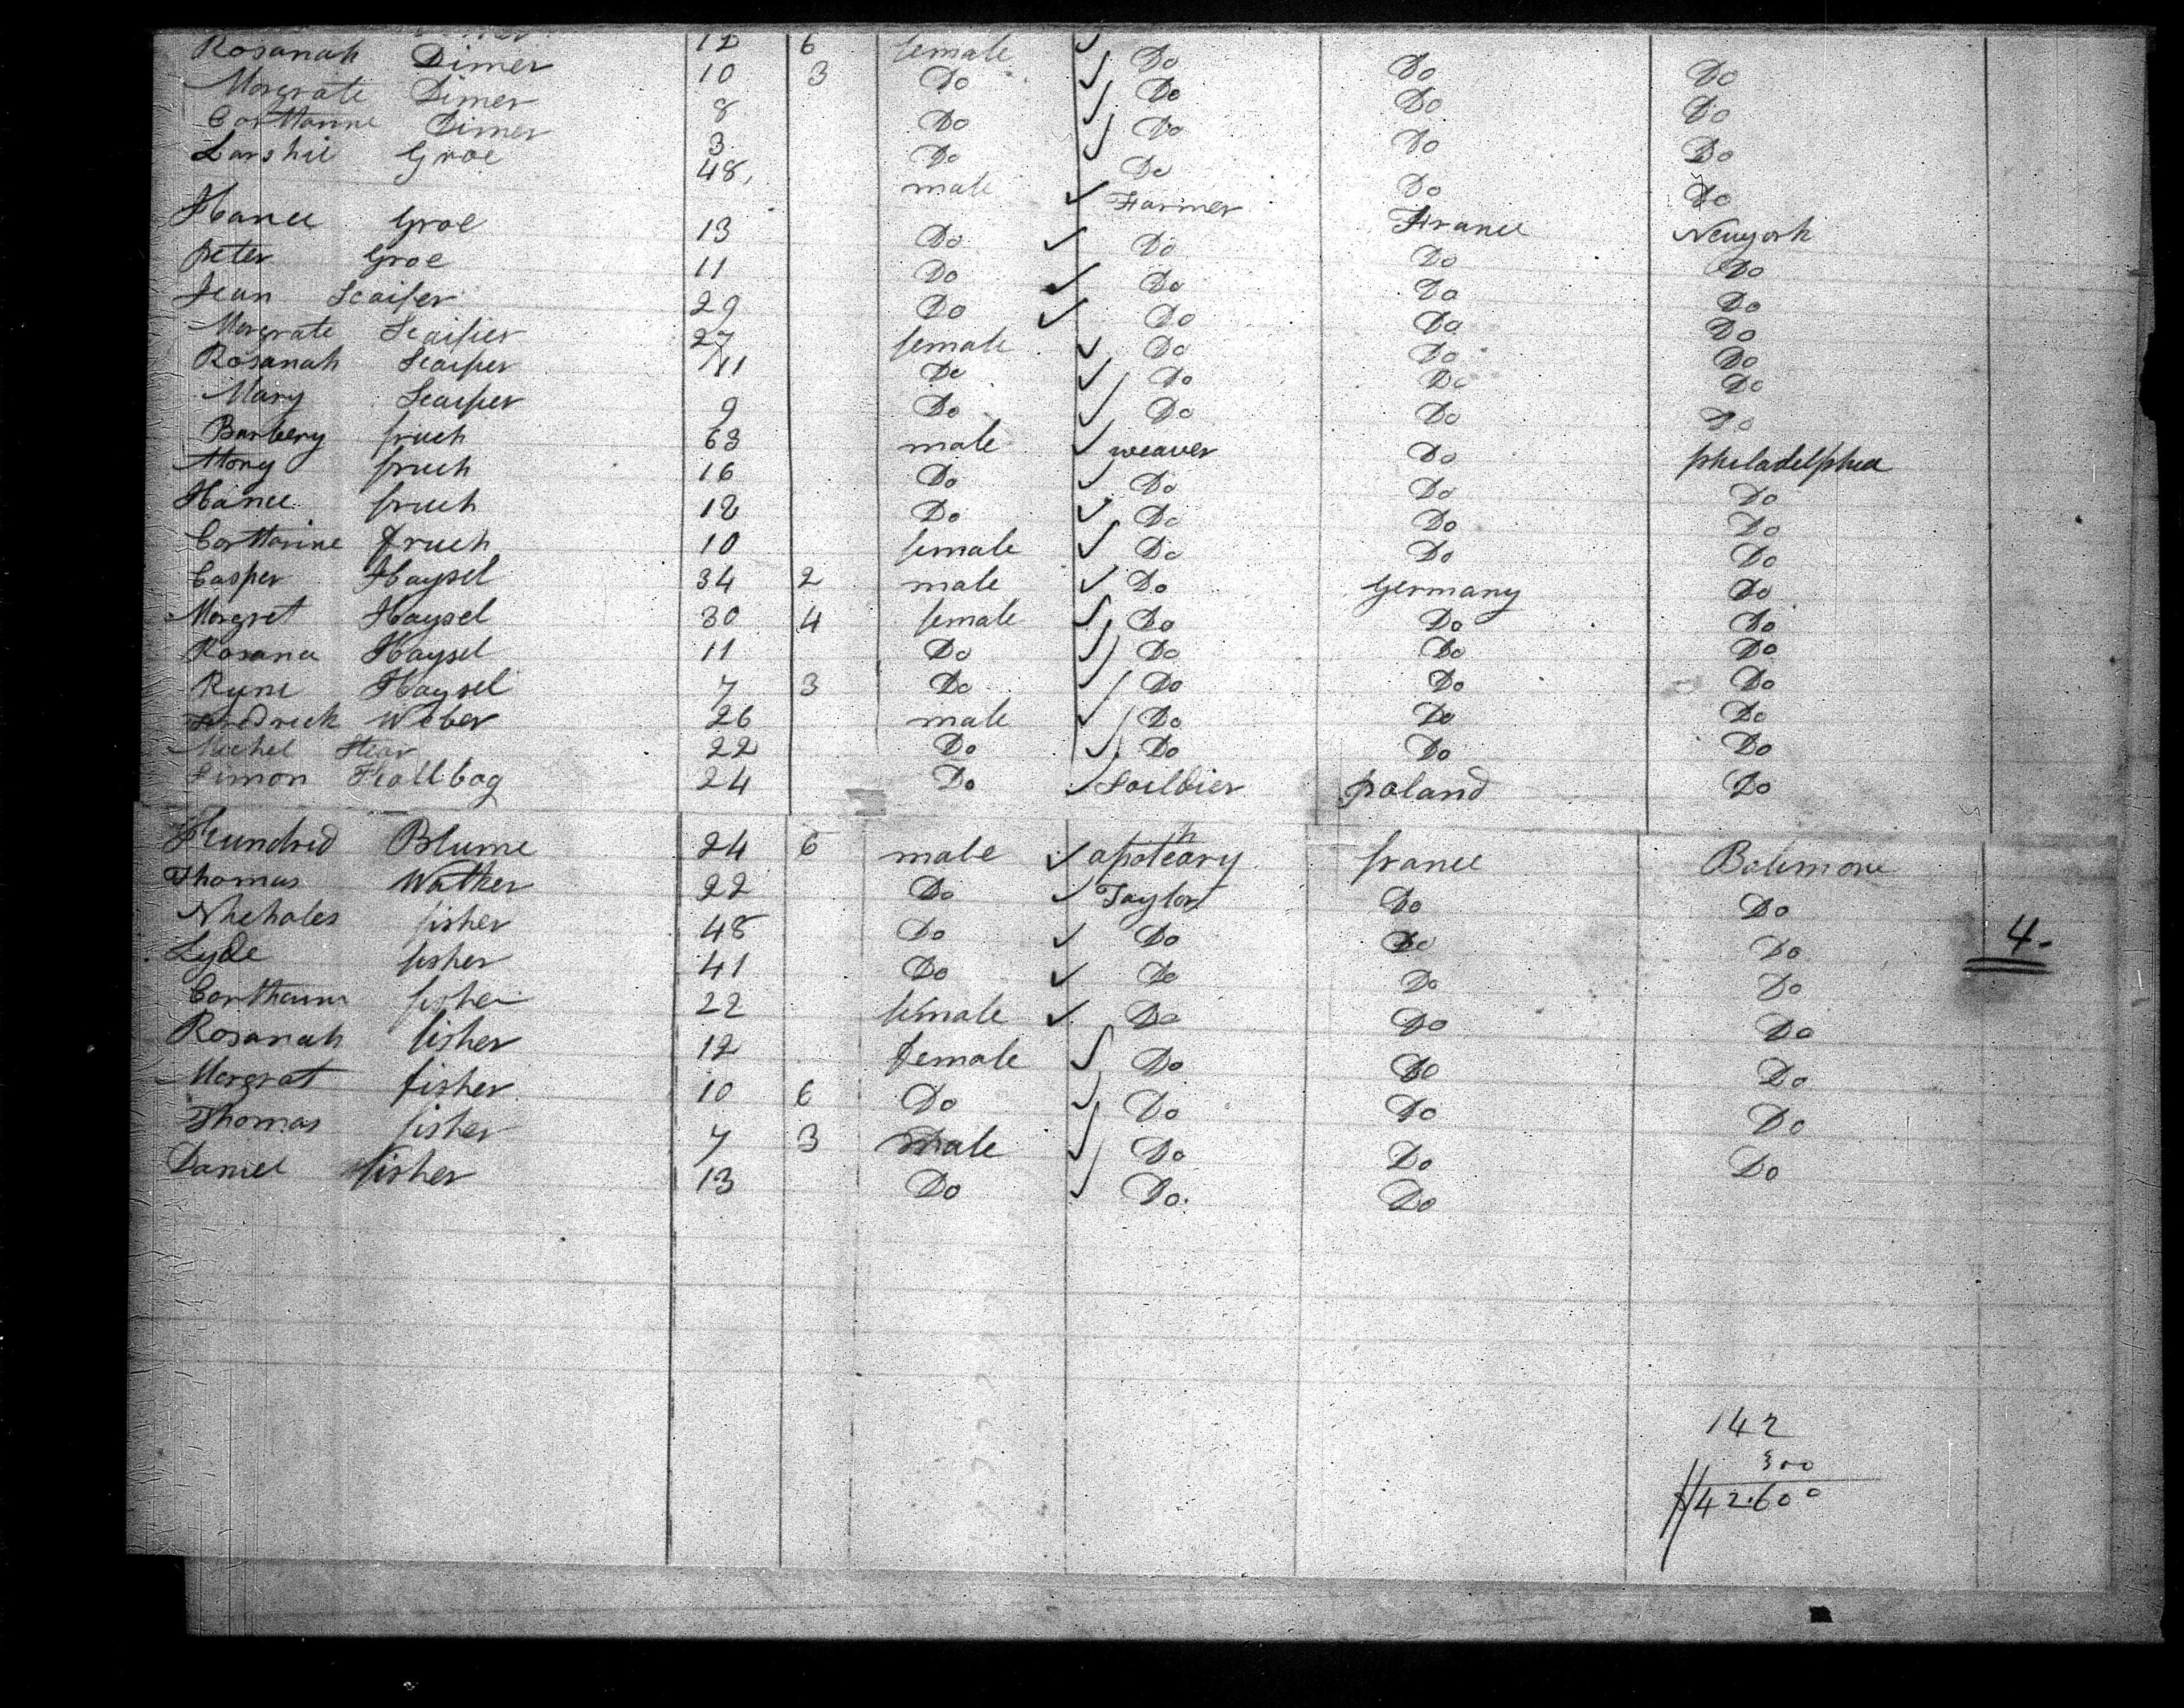 Rosanah Dimer 12 6 female Do Do Do
Morgrate Dimer 10 3 Do Do Do Do
Corttarine Dimer 8 Do Do Do Do
Larshie Groe 48 male Farmer France Newyork
Hance Groe 13 Do Do Do Do
peter Groe 11 Do Do Do Do
Jean Scaifer 29 Do Do Do Do
Morgrate Scaifer 27 female Do Do Do
Rosanah Scaifer 11 Do Do Do Do
Mary Scaifer 9 Do Do Do Do
Barbery fruch 63 male weaver Do philadelphia
Mony fruch 16 Do Do Do Do
Hance fruch 12 Do Do Do Do
Corttarine fruch 10 female Do Do Do
Casper Haysel 34 2 male Do Germany Do
Morgret Haysel 30 4 female Do Do Do
Rosana Haysel 11 Do Do Do Do
Ryne Haysel 7 3 Do Do Do Do
fredrick Weber 26 male Do Do Do
Michel Hear 22 Do Do Do Do
Simon 24 Do Soilbier poland Do
Hundrid Blume 24 6 male apotheary france Baltimore
Thomas Walker 22 Do Taylor Do Do
Nhcholes fisher 48 Do Do Do Do
Lyde fisher 41 Do Do Do Do 4-
fisher 22 female Do Do Do
Rosanah fisher 12 female Do Do Do
Morgrat fisher 10 6 Do Do Do Do
Thomas fisher 7 3 male Do Do Do
Daniel fisher 13 Do Do Do
142
300
42600